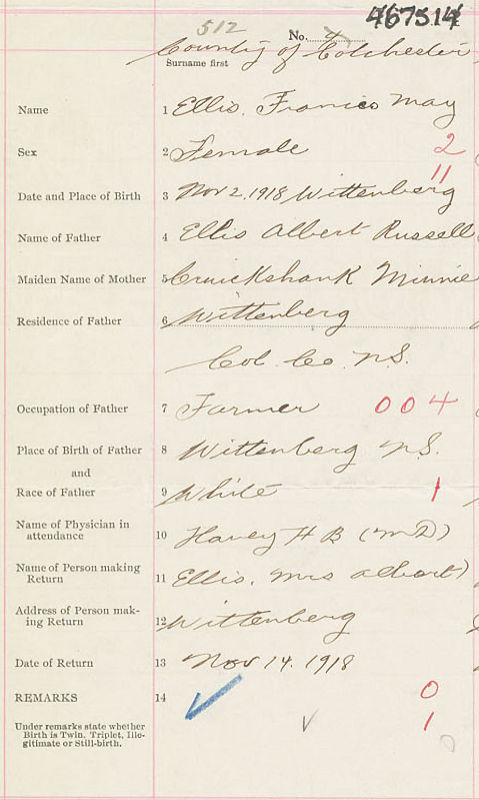 512
No. 4
467514
County of Colchester
Surname first
Name 1 Ellis, Frances May
Sex 2 Female 2
11
Date and Place of Birth 3 Nov 2, 1918 Wittenberg
Name of Father 4 Ellis Albert Russell
Maiden Name of Mother 5 Cruickshank Minnie
Residence of Father 6 Wittenberg
Col. Co. N.S.
Occupation of Father 7 Farmer 004
Place of Birth of Father 8 Wittenberg N.S.
and
Race of Father 9 White 1
Name of Physician in
attendance 10 H B (MD)
Name of Person making
Return 11 Ellis, Mrs Albert)
Address of Person mak-
ing Return 12 Wittenberg
Date of Return 13 Nov 14. 1918
REMARKS 14 0
Under remarks state whether
Birth is Twin, Triplet, Ille-
gitimate or Still-birth. 1